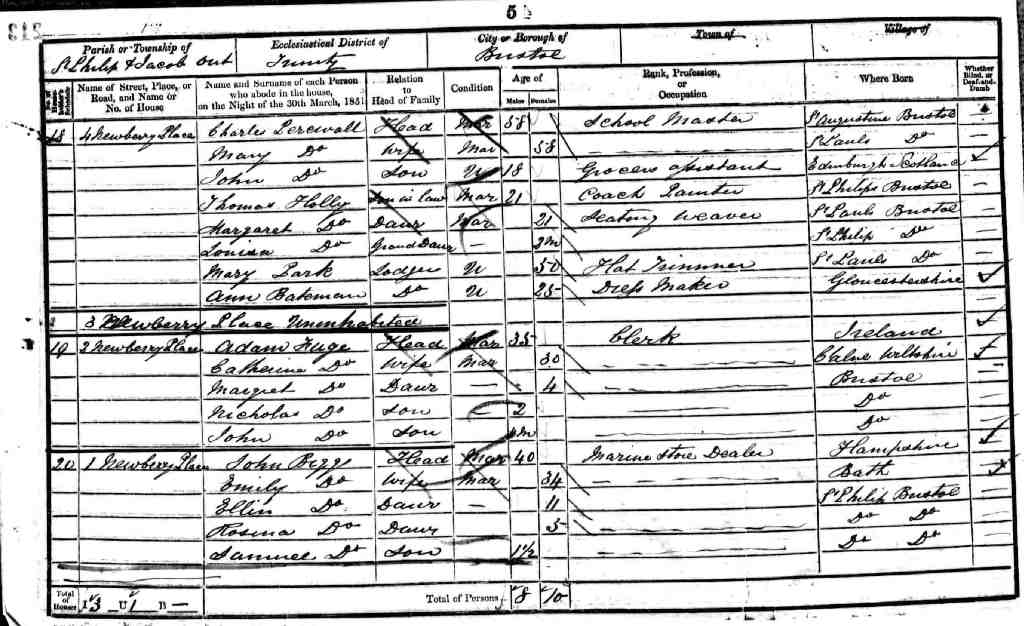 5
Parish or Township of Ecclesiastical District of City or Borough of Town of Village of
St Philip & Jacob Out Trinity Bristol
No. of House-holder's Schedule Name of Street, Place, or Road, and Name or No. of House Name and Surname of each Person who abode in the house, on the Night of the 30th March, 1851 Relation to Head of Family Condition Age of Males Females Rank, Profession, or Occupation Where Born Whether Blind, or Deaf-and-Dumb
18 4 Newberry Place Charles Percivall Head Mar 58 School Master St Augustine Bristol
Mary Do Wife Mar 58 St Pauls Do
John Do Son U 18 Grocers assistant Edinburgh Scotland
Thomas Holly Son in law Mar 21 Coach Painter St Philips Bristol
Margaret Do Daur Mar 21 Seating Weaver St Pauls Bristol
Louisa Do Grand Daur — 2m St Philip Do
Mary Park Lodger U 50 Hat Trimmer St Pauls Do
Ann Bateman Do U 25 Dress Maker Gloucestershire
3 Newberry Place Uninhabited
19 2 Newberry Place Adam Huge Head Mar 35 Clerk Ireland
Catherine Do Wife Mar 30 Calne Wiltshire
Margret Do Daur — 4 Bristol
Nicholas Do Son — 2 Do
John Do Son 4m Do
20 1 Newberry Place John Biggs Head Mar 40 Marine Store Dealer Hampshire
Emily Do Wife Mar 34 Bath
Ellin Do Daur — 11 St Philip Bristol
Rosina Do Daur 5 Do Do
Samuel Do Son 1½ Do Do
Total of Houses I 3 U 1 B — Total of Persons 8 10